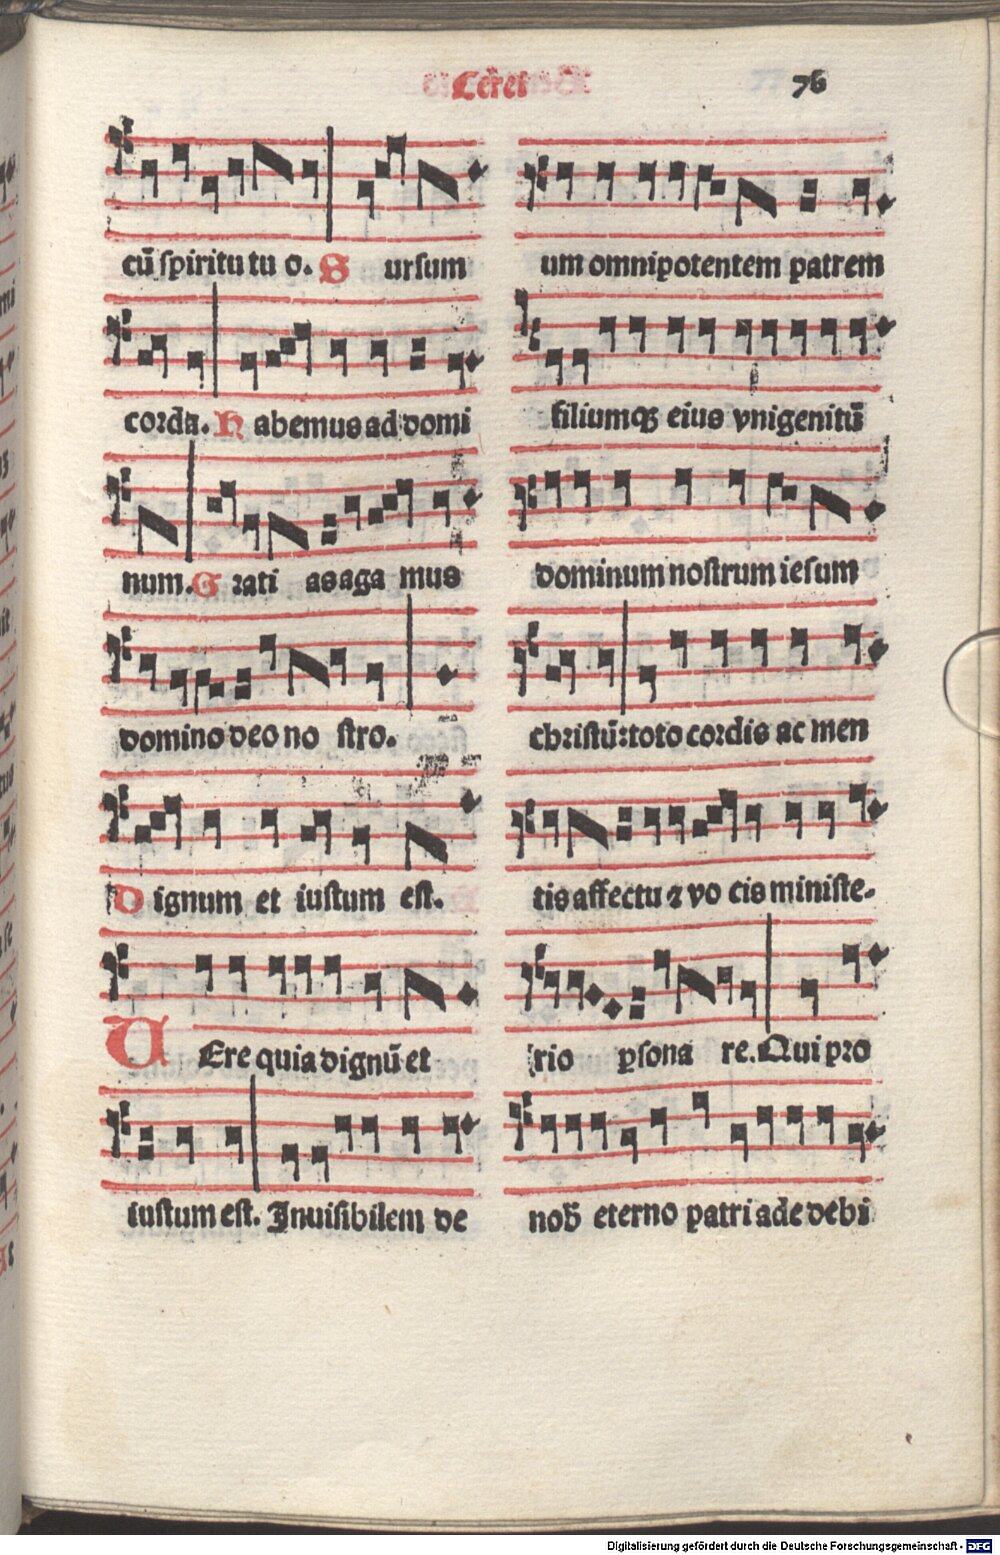 Cerei
76
cū spiritu tu o. S ursum
corda. H abemus ad domi
num. G rati as aga mus
domino deo no stro.
D ignum et iustum est.
UEre quia dignū et
iustum est. Inuisibilem de
um omnipotentem patrem
filiumqꝫ eius vnigenitū
dominum nostrum iesum
christū: toto cordis ac men
tis affectu ⁊ vo cis ministe-
rio ꝑsona re. Qui pro
nob̄ eterno patri ade debi
Digitalisierung gefördert durch die Deutsche Forschungsgemeinschaft - DFG